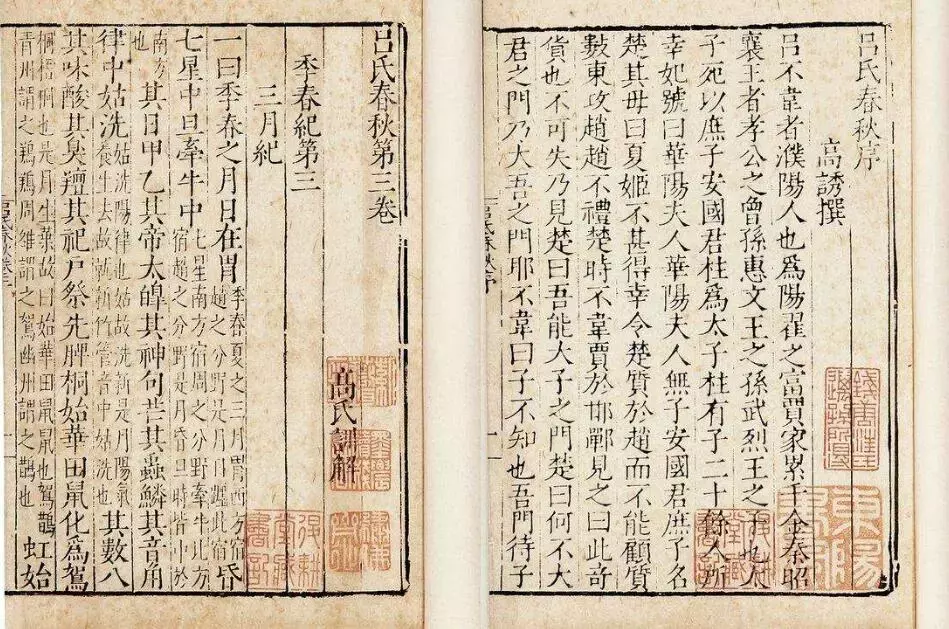 呂氏春秋序
高誘撰
呂不韋者濮陽人也爲陽翟之富賈家累千金秦昭
襄王者孝公之曾孫惠文王之孫武烈王之子也太
子死以庶子安國君柱爲太子柱有子二十餘人所
幸妃號曰華陽夫人華陽夫人無子安國君庶子名
楚其母曰夏姬不甚得幸令楚質於趙而不能顧質
數東攻趙趙不禮楚時不韋賈於邯鄲見之曰此奇
貨也不可失乃見楚曰吾能大子之門楚曰何不大
君之門乃大吾之門耶不韋曰子不知也吾門待子
呂氏春秋序
呂氏春秋第三卷
高氏訓解
季春紀第三
三月紀
一曰季春之月日在胃季春夏之三月胃西方宿趙之分野是月日躔此宿昏
七星中旦牽牛中七星南方宿周之分野牽牛北方宿趙之分野是月昏旦時皆中於
南方也其日甲乙其帝太皞其神句芒其蟲鱗其音角
律中姑洗姑洗陽律也姑故洗新是月陽氣養生去故就新竹管音中姑洗也其數八
其味酸其臭羶其祀戶祭先脾桐始華田鼠化爲鴽
桐梧桐也是月生葉故曰始華田鼠也鴽鵲青州謂之周雒謂之鴽幽州謂之鵲也虹始
呂氏春秋卷三